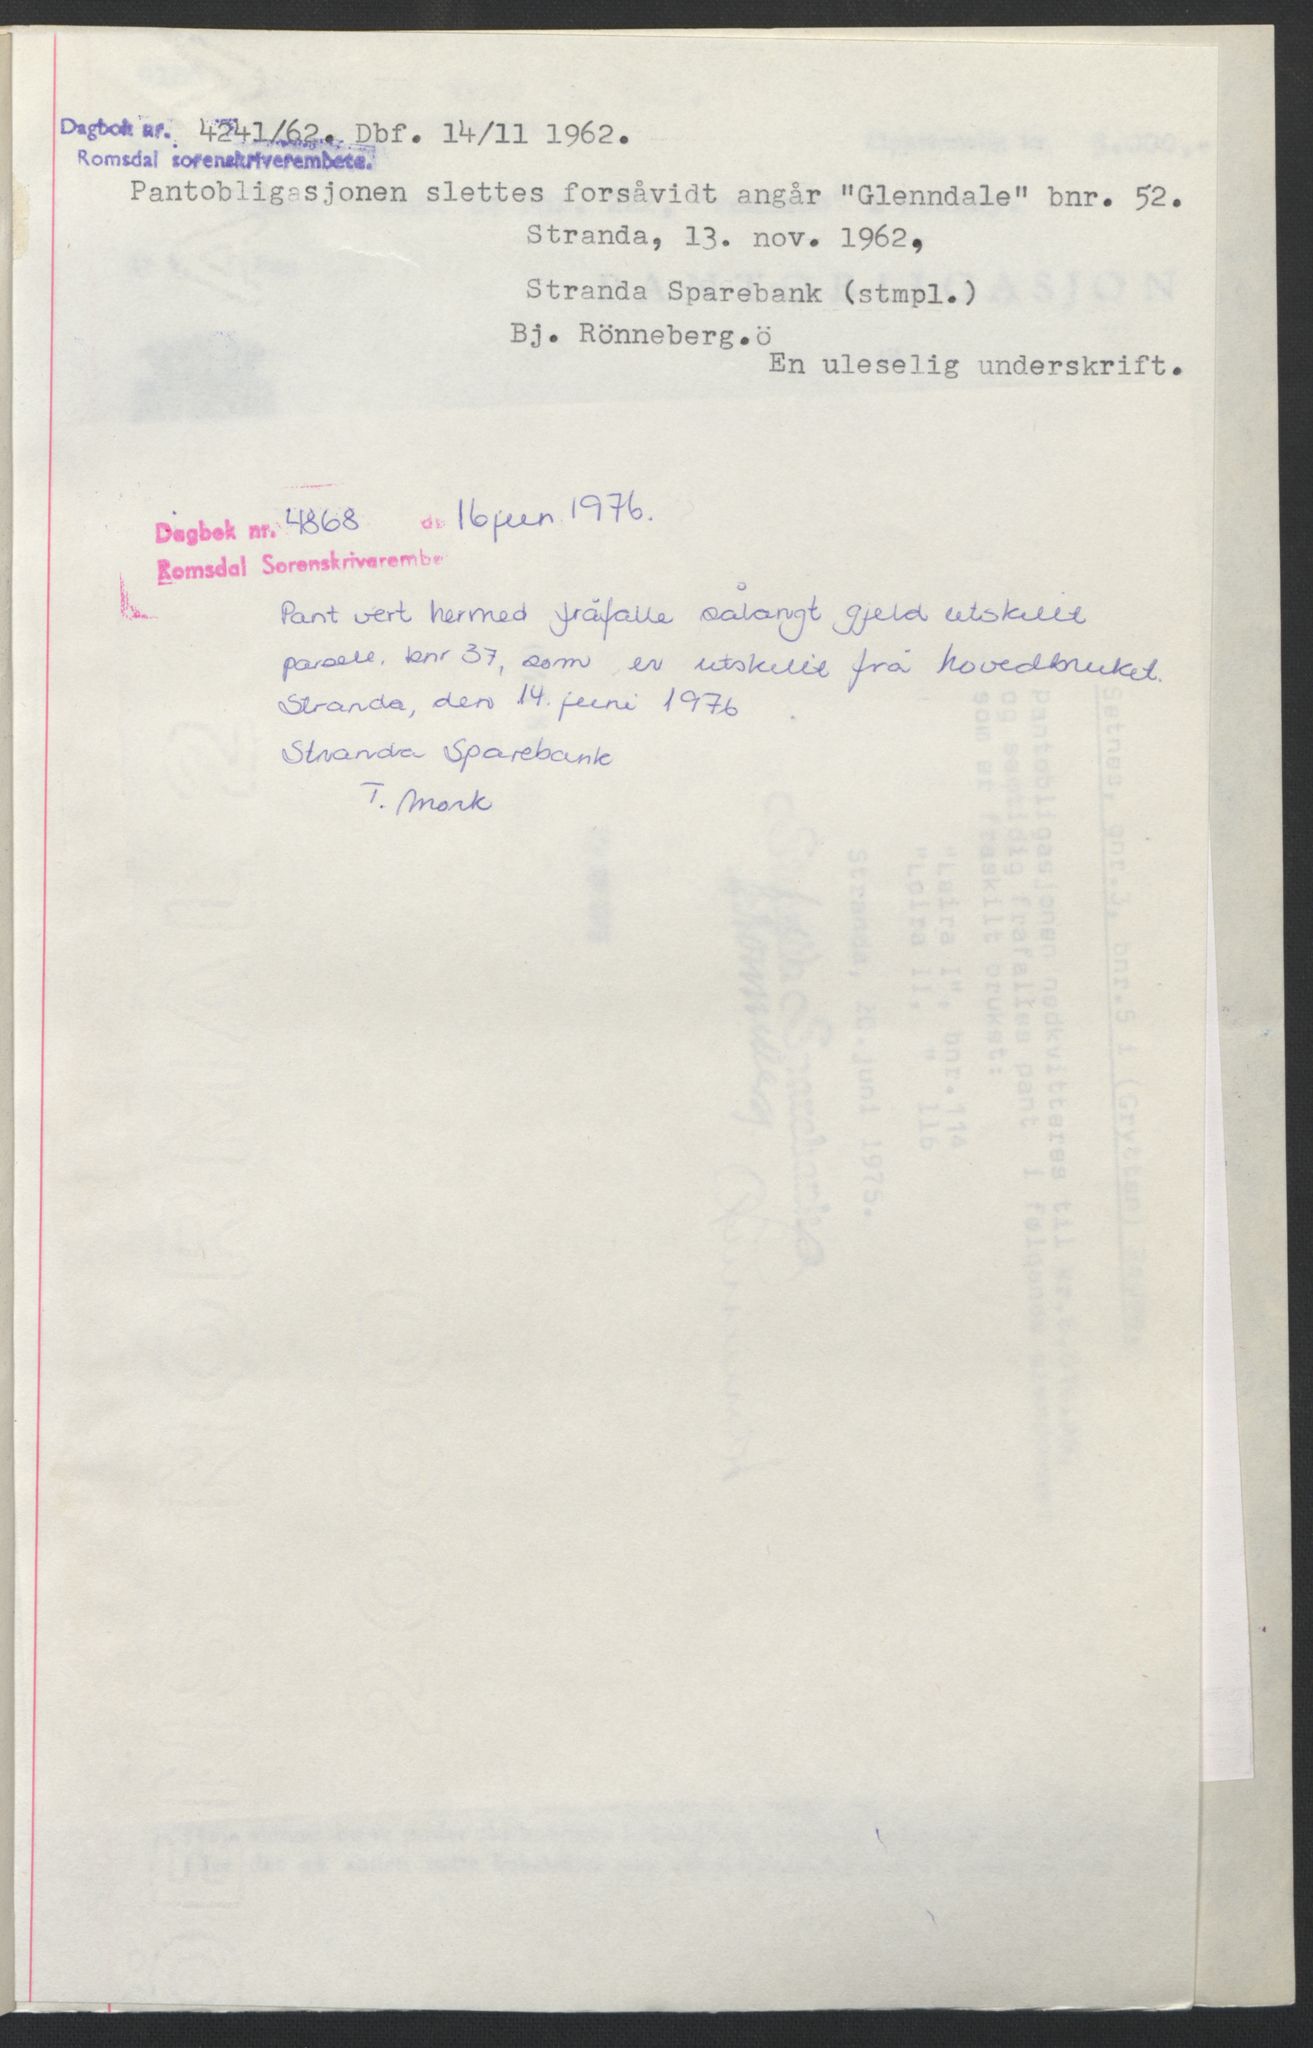 Dagbok nr. 4241/62. Dbf. 14/11 1962.
Romsdal sorenskriverembete.
Pantobligasjonen slettes forsåvidt angår "Glenndale" bnr. 52.
Stranda, 13. nov. 1962,
Stranda Sparebank (stmpl.)
Bj. Rönneberg.ö
En uleselig underskrift.
Dagbok nr. 4868 de 16 juni 1976.
Romsdal Sorenskrivarembe
Pant vert hermed fråfalle sålangt gjeld utskilt
parsell, bnr 37, som er utskilt frå hovedbruket.
Stranda, den 14. juni 1976
Stranda Sparebank
T. Mork